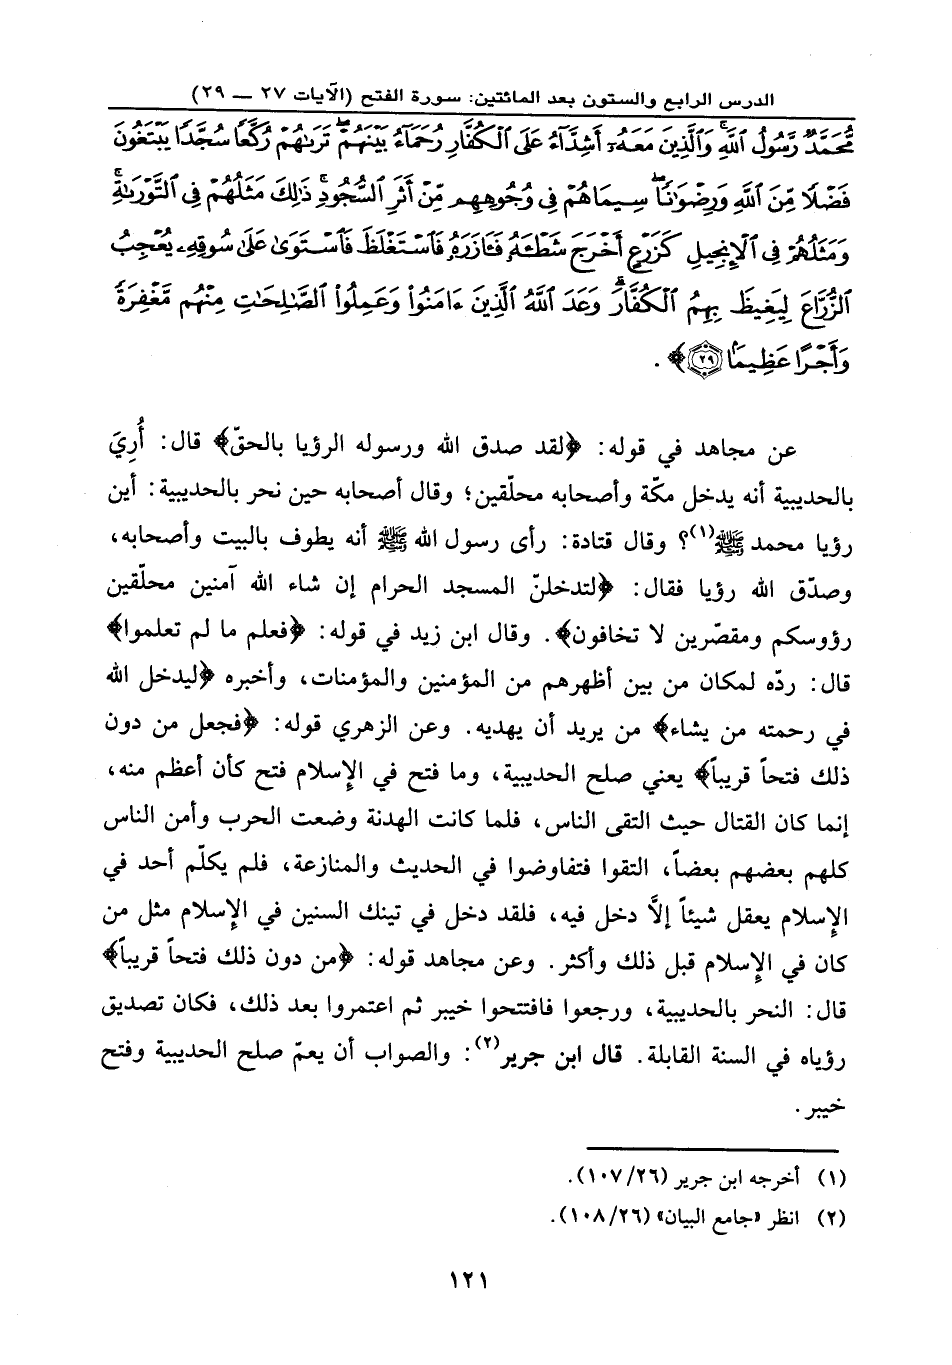 الدرس الرابع والستون بعد المائتين: سورة الفتح (الآيات ٢٧ — ٢٩)
مُّحَمَّدٌ رَّسُولُ ٱللَّهِ وَٱلَّذِينَ مَعَهُۥٓ أَشِدَّآءُ عَلَى ٱلْكُفَّارِ رُحَمَآءُ بَيْنَهُمْ تَرَىٰهُمْ رُكَّعًا سُجَّدًا يَبْتَغُونَ
فَضْلًا مِّنَ ٱللَّهِ وَرِضْوَٰنًا سِيمَاهُمْ فِى وُجُوهِهِم مِّنْ أَثَرِ ٱلسُّجُودِ ذَٰلِكَ مَثَلُهُمْ فِى ٱلتَّوْرَىٰةِ
وَمَثَلُهُمْ فِى ٱلْإِنجِيلِ كَزَرْعٍ أَخْرَجَ شَطْـَٔهُۥ فَـَٔازَرَهُۥ فَٱسْتَغْلَظَ فَٱسْتَوَىٰ عَلَىٰ سُوقِهِۦ يُعْجِبُ
ٱلزُّرَّاعَ لِيَغِيظَ بِهِمُ ٱلْكُفَّارَ وَعَدَ ٱللَّهُ ٱلَّذِينَ ءَامَنُوا۟ وَعَمِلُوا۟ ٱلصَّٰلِحَٰتِ مِنْهُم مَّغْفِرَةً
وَأَجْرًا عَظِيمًۢا ٢٩﴾.
عن مجاهد في قوله: ﴿لقد صدق الله ورسوله الرؤيا بالحقّ﴾ قال: أُرِيَ
بالحديبية أنه يدخل مكّة وأصحابه محلّقين؛ وقال أصحابه حين نحر بالحديبية: أين
رؤيا محمد ﷺ(١)؟ وقال قتادة: رأى رسول الله ﷺ أنه يطوف بالبيت وأصحابه،
وصدّق الله رؤيا فقال: ﴿لتدخلنّ المسجد الحرام إن شاء الله آمنين محلّقين
رؤوسكم ومقصّرين لا تخافون﴾. وقال ابن زيد في قوله: ﴿فعلم ما لم تعلموا﴾
قال: ردّه لمكان من بين أظهرهم من المؤمنين والمؤمنات، وأخبره ﴿ليدخل الله
في رحمته من يشاء﴾ من يريد أن يهديه. وعن الزهري قوله: ﴿فجعل من دون
ذلك فتحاً قريباً﴾ يعني صلح الحديبية، وما فتح في الإسلام فتح كأن أعظم منه،
إنما كان القتال حيث التقى الناس، فلما كانت الهدنة وضعت الحرب وأمن الناس
كلهم بعضهم بعضاً، التقوا فتفاوضوا في الحديث والمنازعة، فلم يكلّم أحد في
الإسلام يعقل شيئاً إلاَّ دخل فيه، فلقد دخل في تينك السنين في الإسلام مثل من
كان في الإسلام قبل ذلك وأكثر. وعن مجاهد قوله: ﴿من دون ذلك فتحاً قريباً﴾
قال: النحر بالحديبية، ورجعوا فافتتحوا خيبر ثم اعتمروا بعد ذلك، فكان تصديق
رؤياه في السنة القابلة. قال ابن جرير(٢): والصواب أن يعمّ صلح الحديبية وفتح
خيبر.
(١) أخرجه ابن جرير (١٠٧/٢٦).
(٢) انظر «جامع البيان» (١٠٨/٢٦).
١٢١